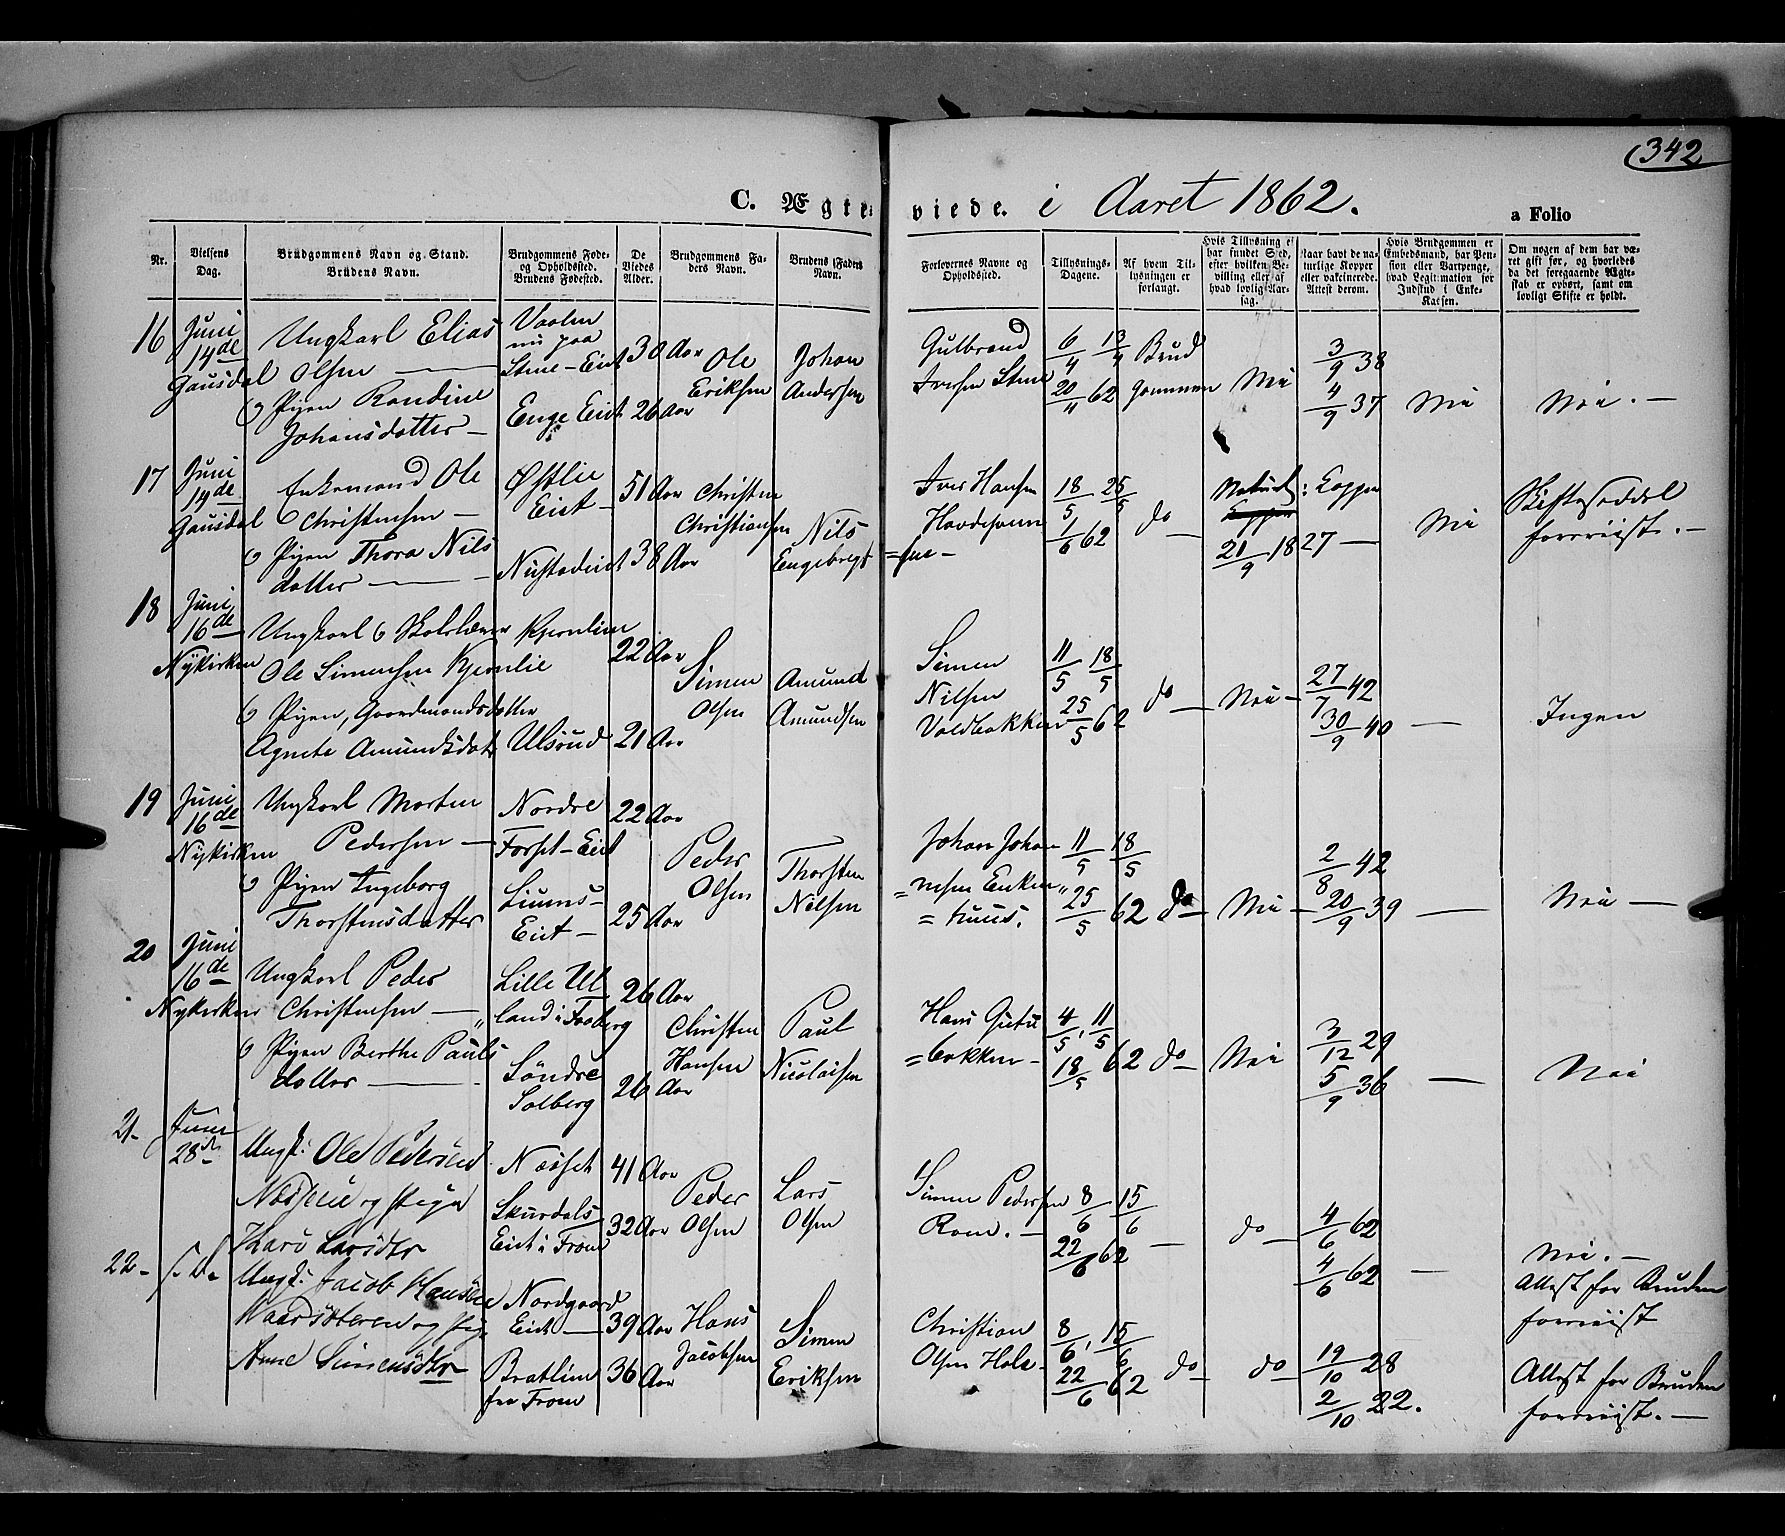 342
C. Ægteviede. i Aaret 1862.
a Folio
Nr.
Vielsens Dag.
Brudgommens Navn og Stand. Brudens Navn.
Brudgommens Føde- og Opholdssted. Brudens Fødested.
De Viedes Alder.
Brudgommens Faders Navn.
Brudens Faders Navn.
Forlovernes Navne og Opholdssted.
Tillysnings-Dagene.
Af hvem Tillysningen er forlangt.
Hvis Tillysning ei har fundet Sted, efter hvilken Bevilling eller af hvad lovlig Aarsag.
Naar havt de naturlige Kopper eller vakcinerede. Attest derom.
Hvis Brudgommen er Embedsmand, har Pension eller Vartpenge, hvad Legitimation for Indskud i Enke-Kassen.
Om nogen af dem har været gift før, og hvorledes da det foregaaende Ægteskab er ophørt, samt om lovligt Skifte er holdt.
16
Juni
14de
Gausdal
Ungkarl Elias
Olsen —
og Pigen Randine
Johansdatter —
nu paa
Stene-Eiet
Enge Eiet
30 Aar
26 Aar
Ole
Eriksen
Johan
Andersen
Gulbrand
Iversen Stene
6/4 13/4
20/4 62
Brudgommen
Nei
3/9 38
4/9 37
Nei
Nei. —
17
Juni
14de
Gausdal
Enkemand Ole
Christensen —
og Pigen Thora Nils
datter —
Østlie
Eiet —
51 Aar
38 Aar
Christen
Christiansen
Nils
Engebregt=sen —
Iver Hansen
18/5 25/5
1/6 62
do —
Naturl: Kopper
21/9 1827 —
Nei
Skifteseddel
foreviist. —
18
Juni
16de
Nykirken
Ungkarl og Skolelærer
Ole Simensen Kjernlie
og Pigen, Gaardmandsdatter
Agnete Amundsdatr
Kjernlien
Ulsrud
22 Aar
21 Aar
Simen
Olsen
Amund
Amundsen
Simen
Nilsen
Voldbakken
11/5 18/5
25/5 62
do —
Nei —
27/7 42
30/9 40
—
Ingen
19
Juni
16de
Nykirken
Ungkarl Morten
Pedersen —
og Pigen Ingeborg
Thorstensdatter
Nordre
Forset-Eiet
Liums-
Eiet —
22 Aar
25 Aar
Peder
Olsen
Thorsten
Nilsen
Johan Johan
=nesen Enken„
=huus.
11/5 18/5
25/5 62
do —
Nei —
2/8 42
20/9 39
—
Nei —
20
Juni
16de
Nykirken
Ungkarl Peder
Christensen —
og Pigen Berthe Pauls
datter —
Lille Ul
„land i Faaberg
Søndre
Solberg
26 Aar
26 Aar
Christen
Hansen
Paul
Nicolaisen
Hans Gutu
=bakken —
4/5, 11/5
18/5 62
do —
Nei
3/12 29
5/9 36
—
Nei
21-
Juni
28de
Ungk: Ole Pedersen
og Pigen
Kari Larsdtr
Næsset
Skurdals
Eiet i Fron
41 Aar
32 Aar
Peder
Olsen
Lars
Olsen
Simen Pedersen
Roen. —
8/6 15/6
22/6 62
—
do —
4/6 62
4/6 62
—
Nei. —
Attest for Bruden
foreviist
22-
Ungk: Jacob Hansen
og Pig.
Anne Simensdtr
Nordgaard
Eiet —
Bratlien
fra Fron
39 Aar
36 Aar
Hans
Jacobsen
Simen
Eriksen
Christian
Olsen Hole —
8/6, 15/6
22/6 62
do —
do —
19/10 28
2/10 22.
Attest for Bruden
foreviist. —